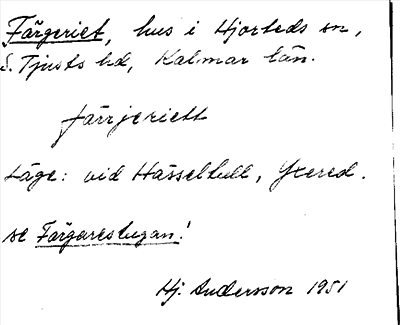 Färgeriet, hus i Hjorteds sn,
S. Tjusts hd, Kalmar län.
färrjeriett
Läge: vid Hässeltull, Ytered.
se Färgarestugan!
Hj. Andersson 1951